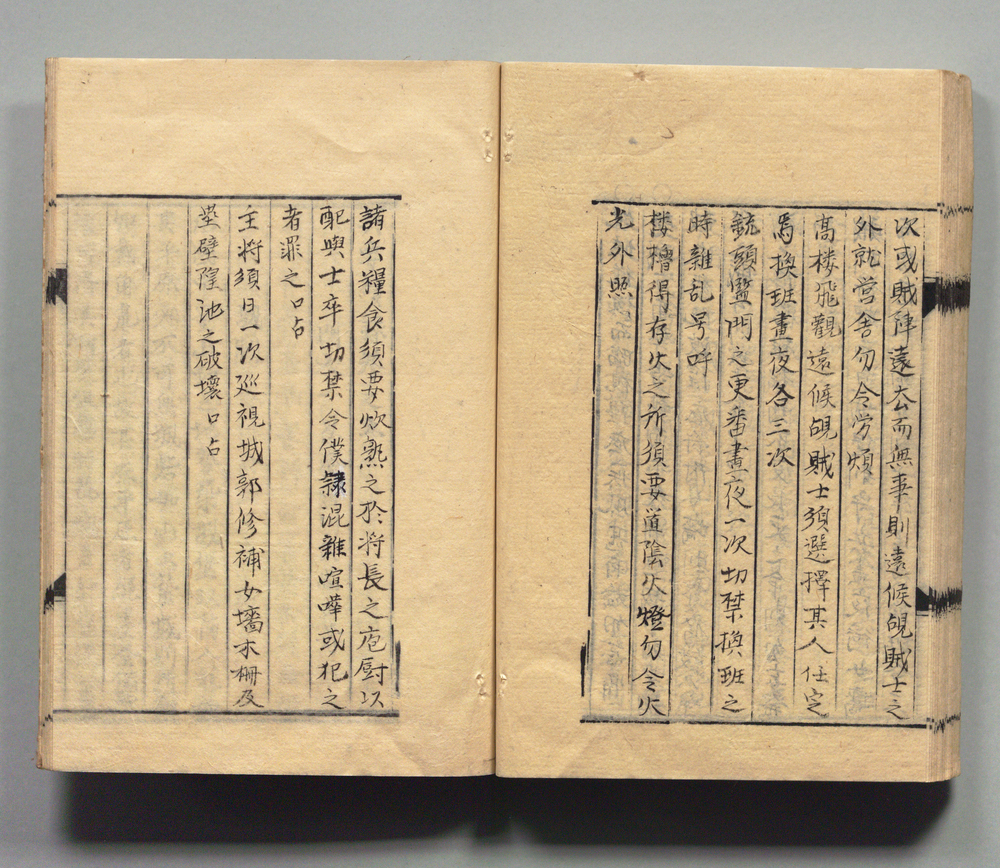 次或賊陣遠去而無事則遠候覘賊士之
外就営舎勿令労煩
髙楼飛觀遠候覘賊士須選擇其人任定
焉換班晝夜各三次
銃頭鑑門之更番晝夜一次切禁換班之
時雜乱号呼
楼櫓得存火之所須要道陰火燈勿令火
光外照
諸兵糧食須要炊熟之於将長之庖厨以
配與士卒切禁令僕隷混雜喧嘩或犯之
者罪之口占
主将須日一次巡視城郭修補女墻木柵及
塁壁隍池之破壞口占